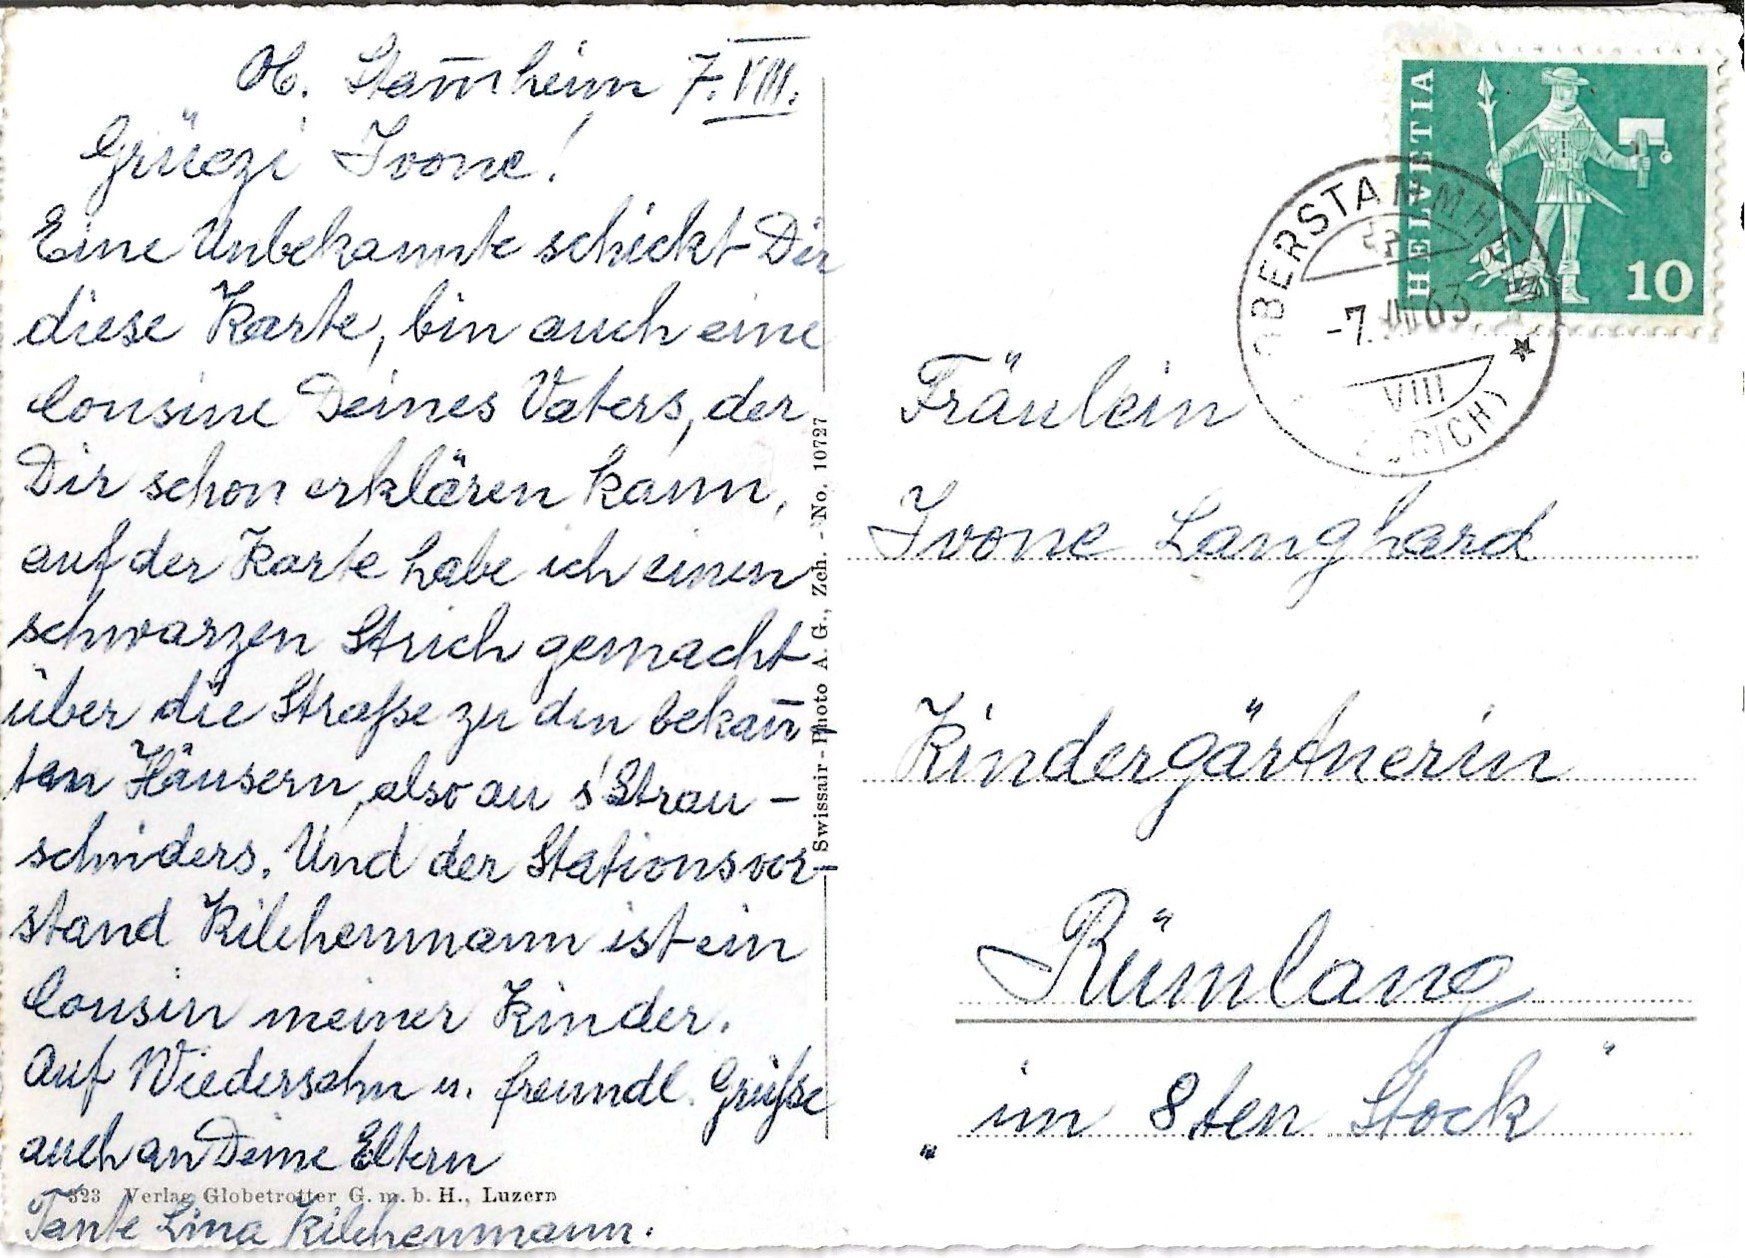 Ob. Stam̅heim 7. VIII.
Grüezi Ivone!
Eine Unbekannte schickt Dir
diese Karte, bin auch eine
Cousine Deines Vaters, der
Dir schon erklären kann,
auf der Karte habe ich einen
schwarzen Strich gemacht
über die Straße zu den bekan̅-
ten Häusern, also au s'Strau-
schniders. Und der Stationsvor-
stand Kilchenmann ist ein
Cousin meiner Kinder.
Auf Wiedersehn u. freundl. Grüße
auch an Deine Eltern
323 Verlag Globetrotter G. m. b. H., Luzern
Tante Lina Kilchenmann.
Swissair-Photo A. G., Zch. - No. 10727
HELVETIA
10
OBERSTAMMHEIM
-7. VIII 63
VIII
(ZÜRICH)
Fräulein
Ivone Langhard
Kindergärtnerin
Rümlang
„im 8ten Stock"